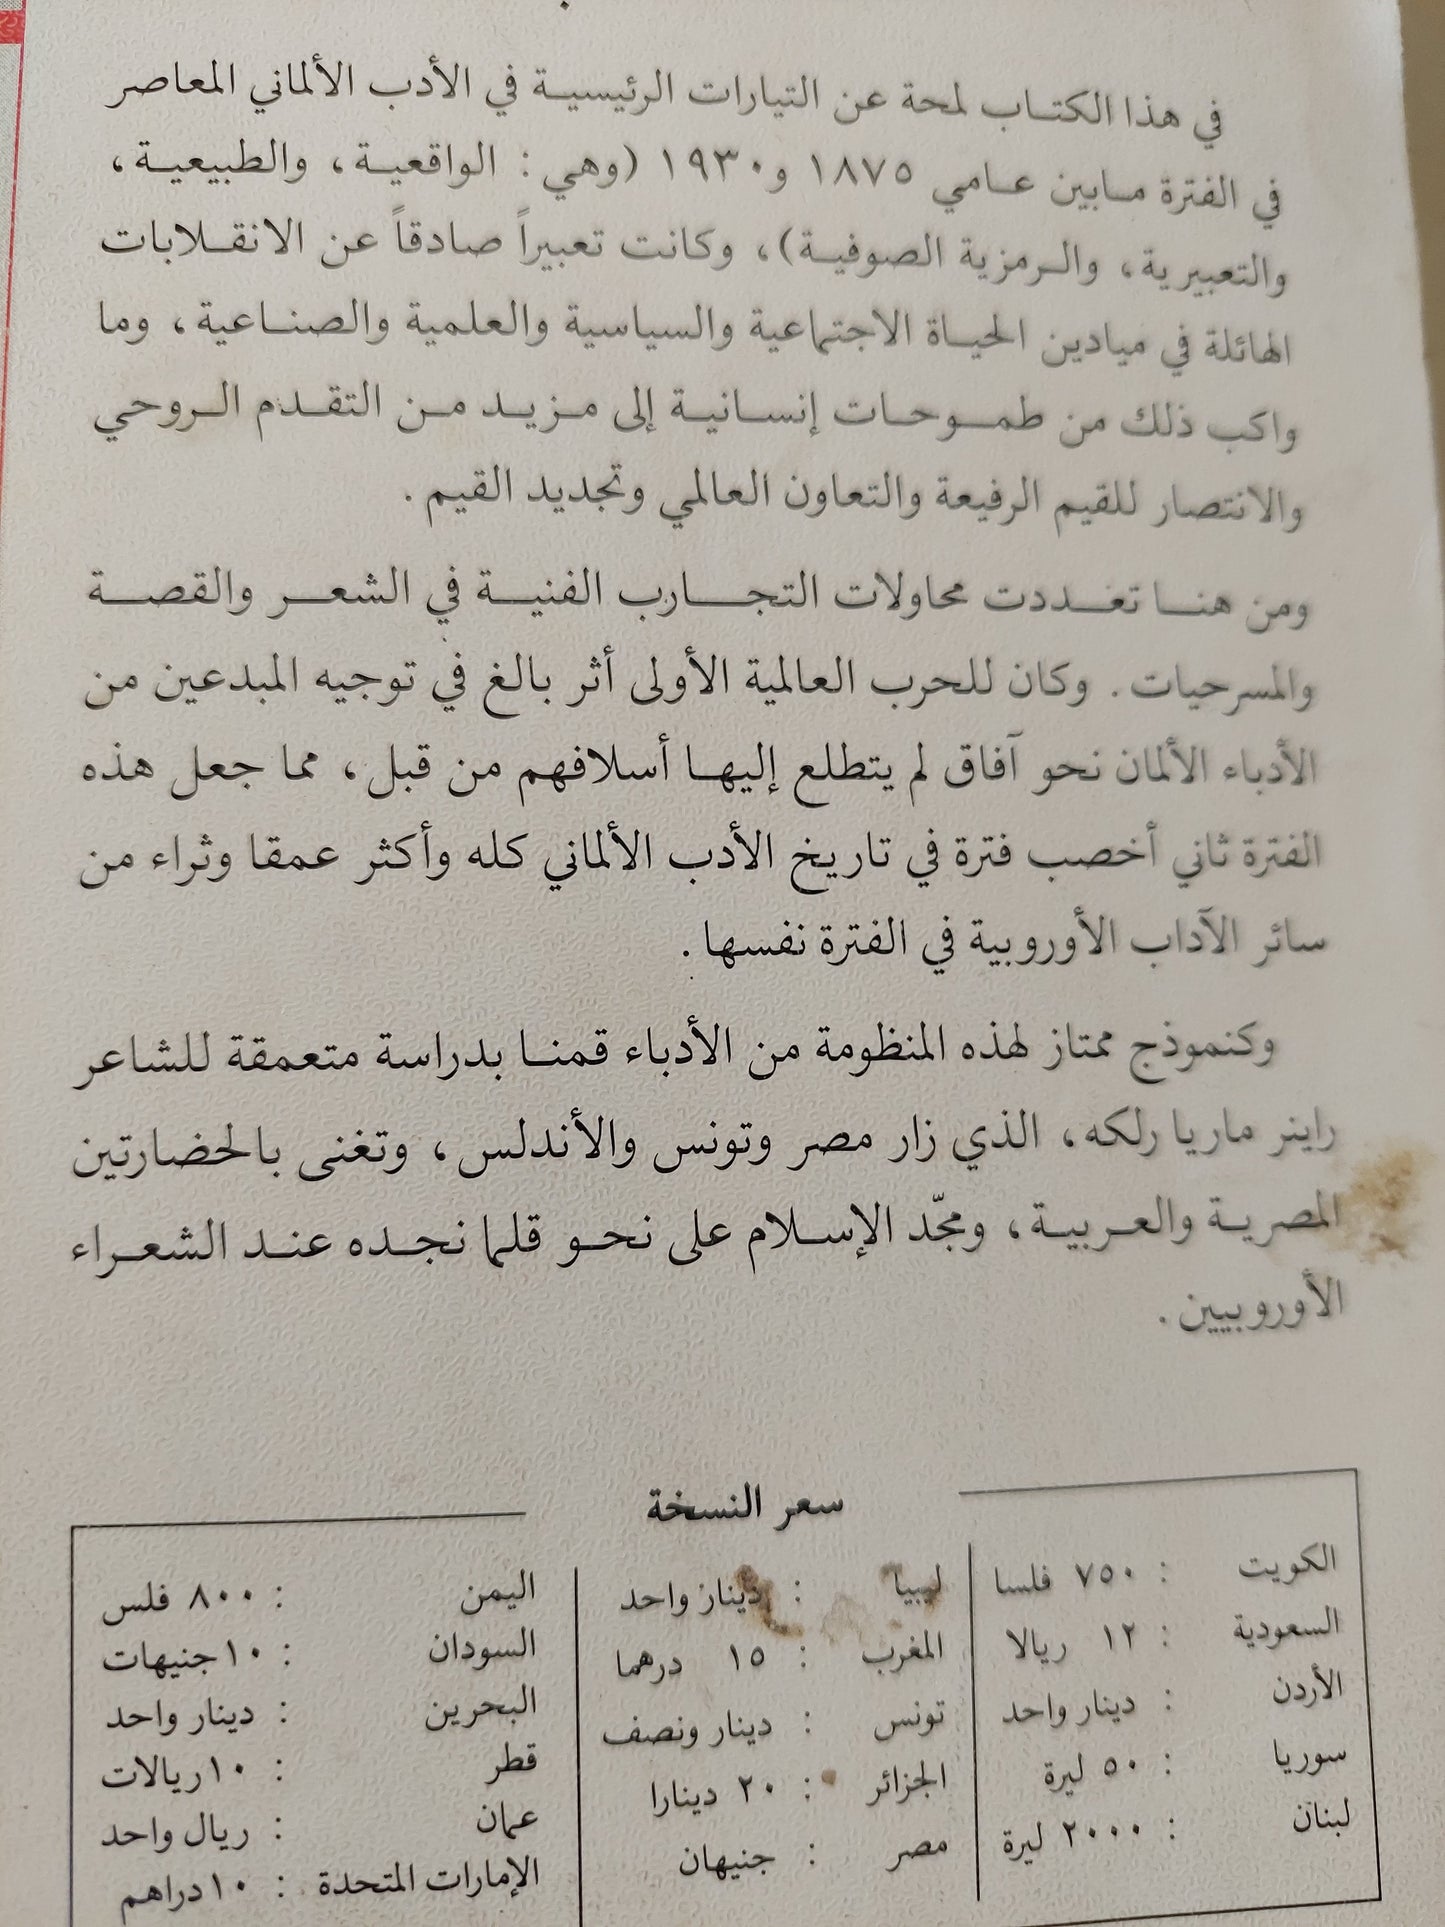 في هذا الكتاب لمحة عن التيارات الرئيسية في الأدب الألماني المعاصر
في الفترة مابين عامي ١٨٧٥ و١٩٣٠ (وهي : الواقعية، والطبيعية،
والتعبيرية، والرمزية الصوفية)، وكانت تعبيراً صادقاً عن الانقلابات
الهائلة في ميادين الحياة الاجتماعية والسياسية والعلمية والصناعية، وما
واكب ذلك من طموحات إنسانية إلى مزيد من التقدم الروحي
والانتصار للقيم الرفيعة والتعاون العالمي وتجديد القيم .
ومن هنا تعددت محاولات التجارب الفنية في الشعر والقصة
والمسرحيات . وكان للحرب العالمية الأولى أثر بالغ في توجيه المبدعين من
الأدباء الألمان نحو آفاق لم يتطلع إليها أسلافهم من قبل، مما جعل هذه
الفترة ثاني أخصب فترة في تاريخ الأدب الألماني كله وأكثر عمقا وثراء من
سائر الآداب الأوروبية في الفترة نفسها .
وكنموذج ممتاز لهذه المنظومة من الأدباء قمنا بدراسة متعمقة للشاعر
راينر ماريا رلكه، الذي زار مصر وتونس والأندلس، وتغنى بالحضارتين
المصرية والعربية، ومجّد الإسلام على نحو قلما نجده عند الشعراء
الأوروبيين .
سعر النسخة
الكويت : ٧٥٠ فلسا
السعودية : ١٢ ريالا
الأردن : دينار واحد
سوريا : ٥٠ ليرة
لبنان : ٢٠٠٠ ليرة
ليبيا : دينار واحد
المغرب : ١٥ درهما
تونس : دينار ونصف
الجزائر : ٢٠ دينارا
مصر : جنيهان
اليمن : ٨٠٠ فلس
السودان : ١٠ جنيهات
البحرين : دينار واحد
قطر : ١٠ ريالات
عمان : ريال واحد
الإمارات المتحدة : ١٠ دراهم